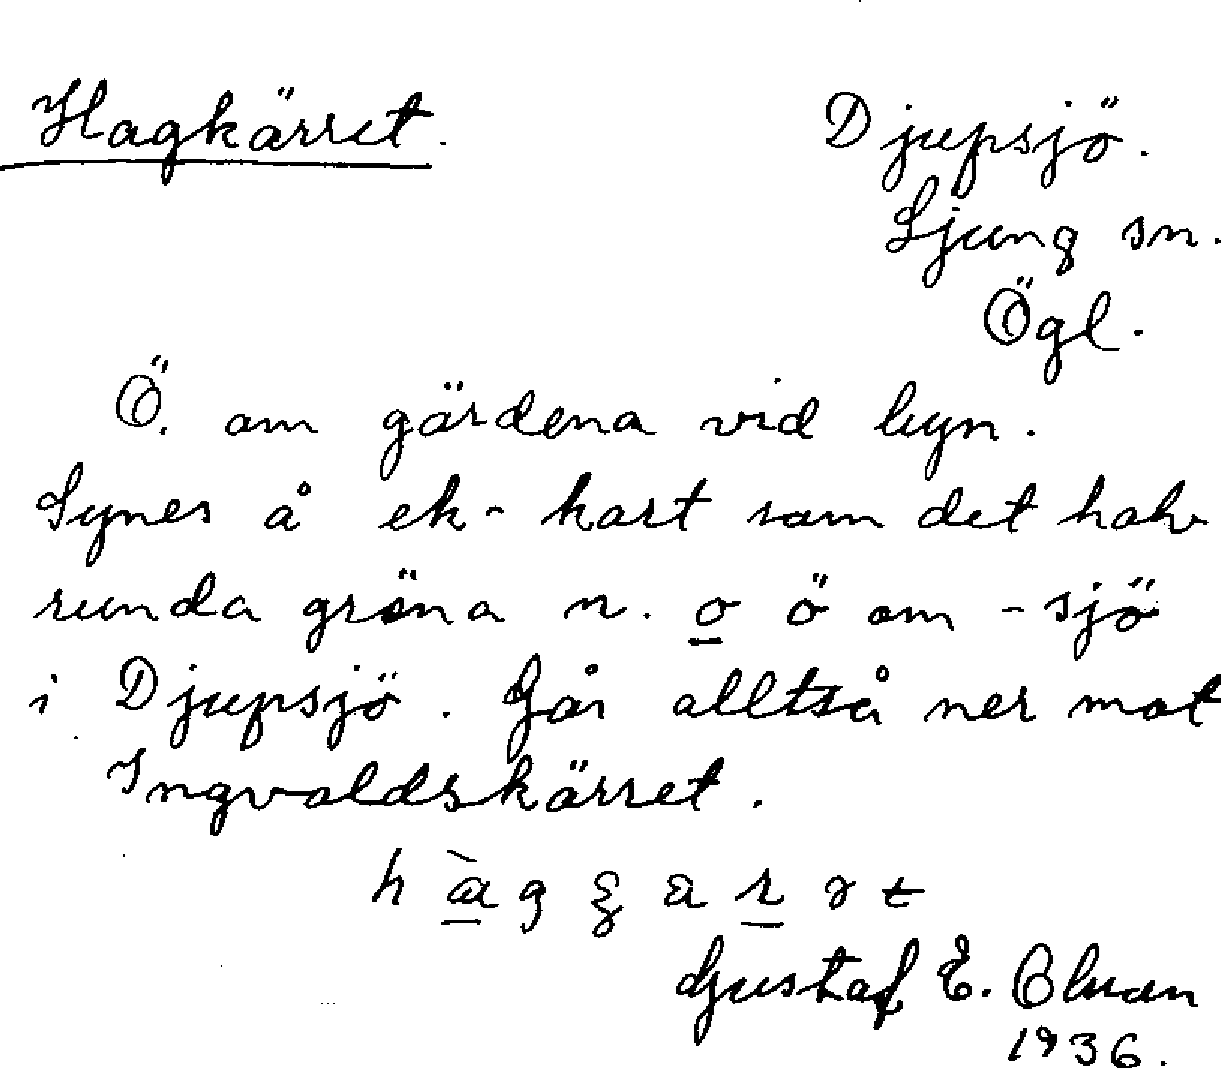 Hagkärret.
Djupsjö.
Ljung sn.
Ögl.
Ö. om gärdena vid byn.
Synes å ek-kart som det halv
runda gröna n. o ö om -sjö
i Djupsjö. Går alltså ner mot
Ingvaldskärret.
Gustaf E. Olson
1936.